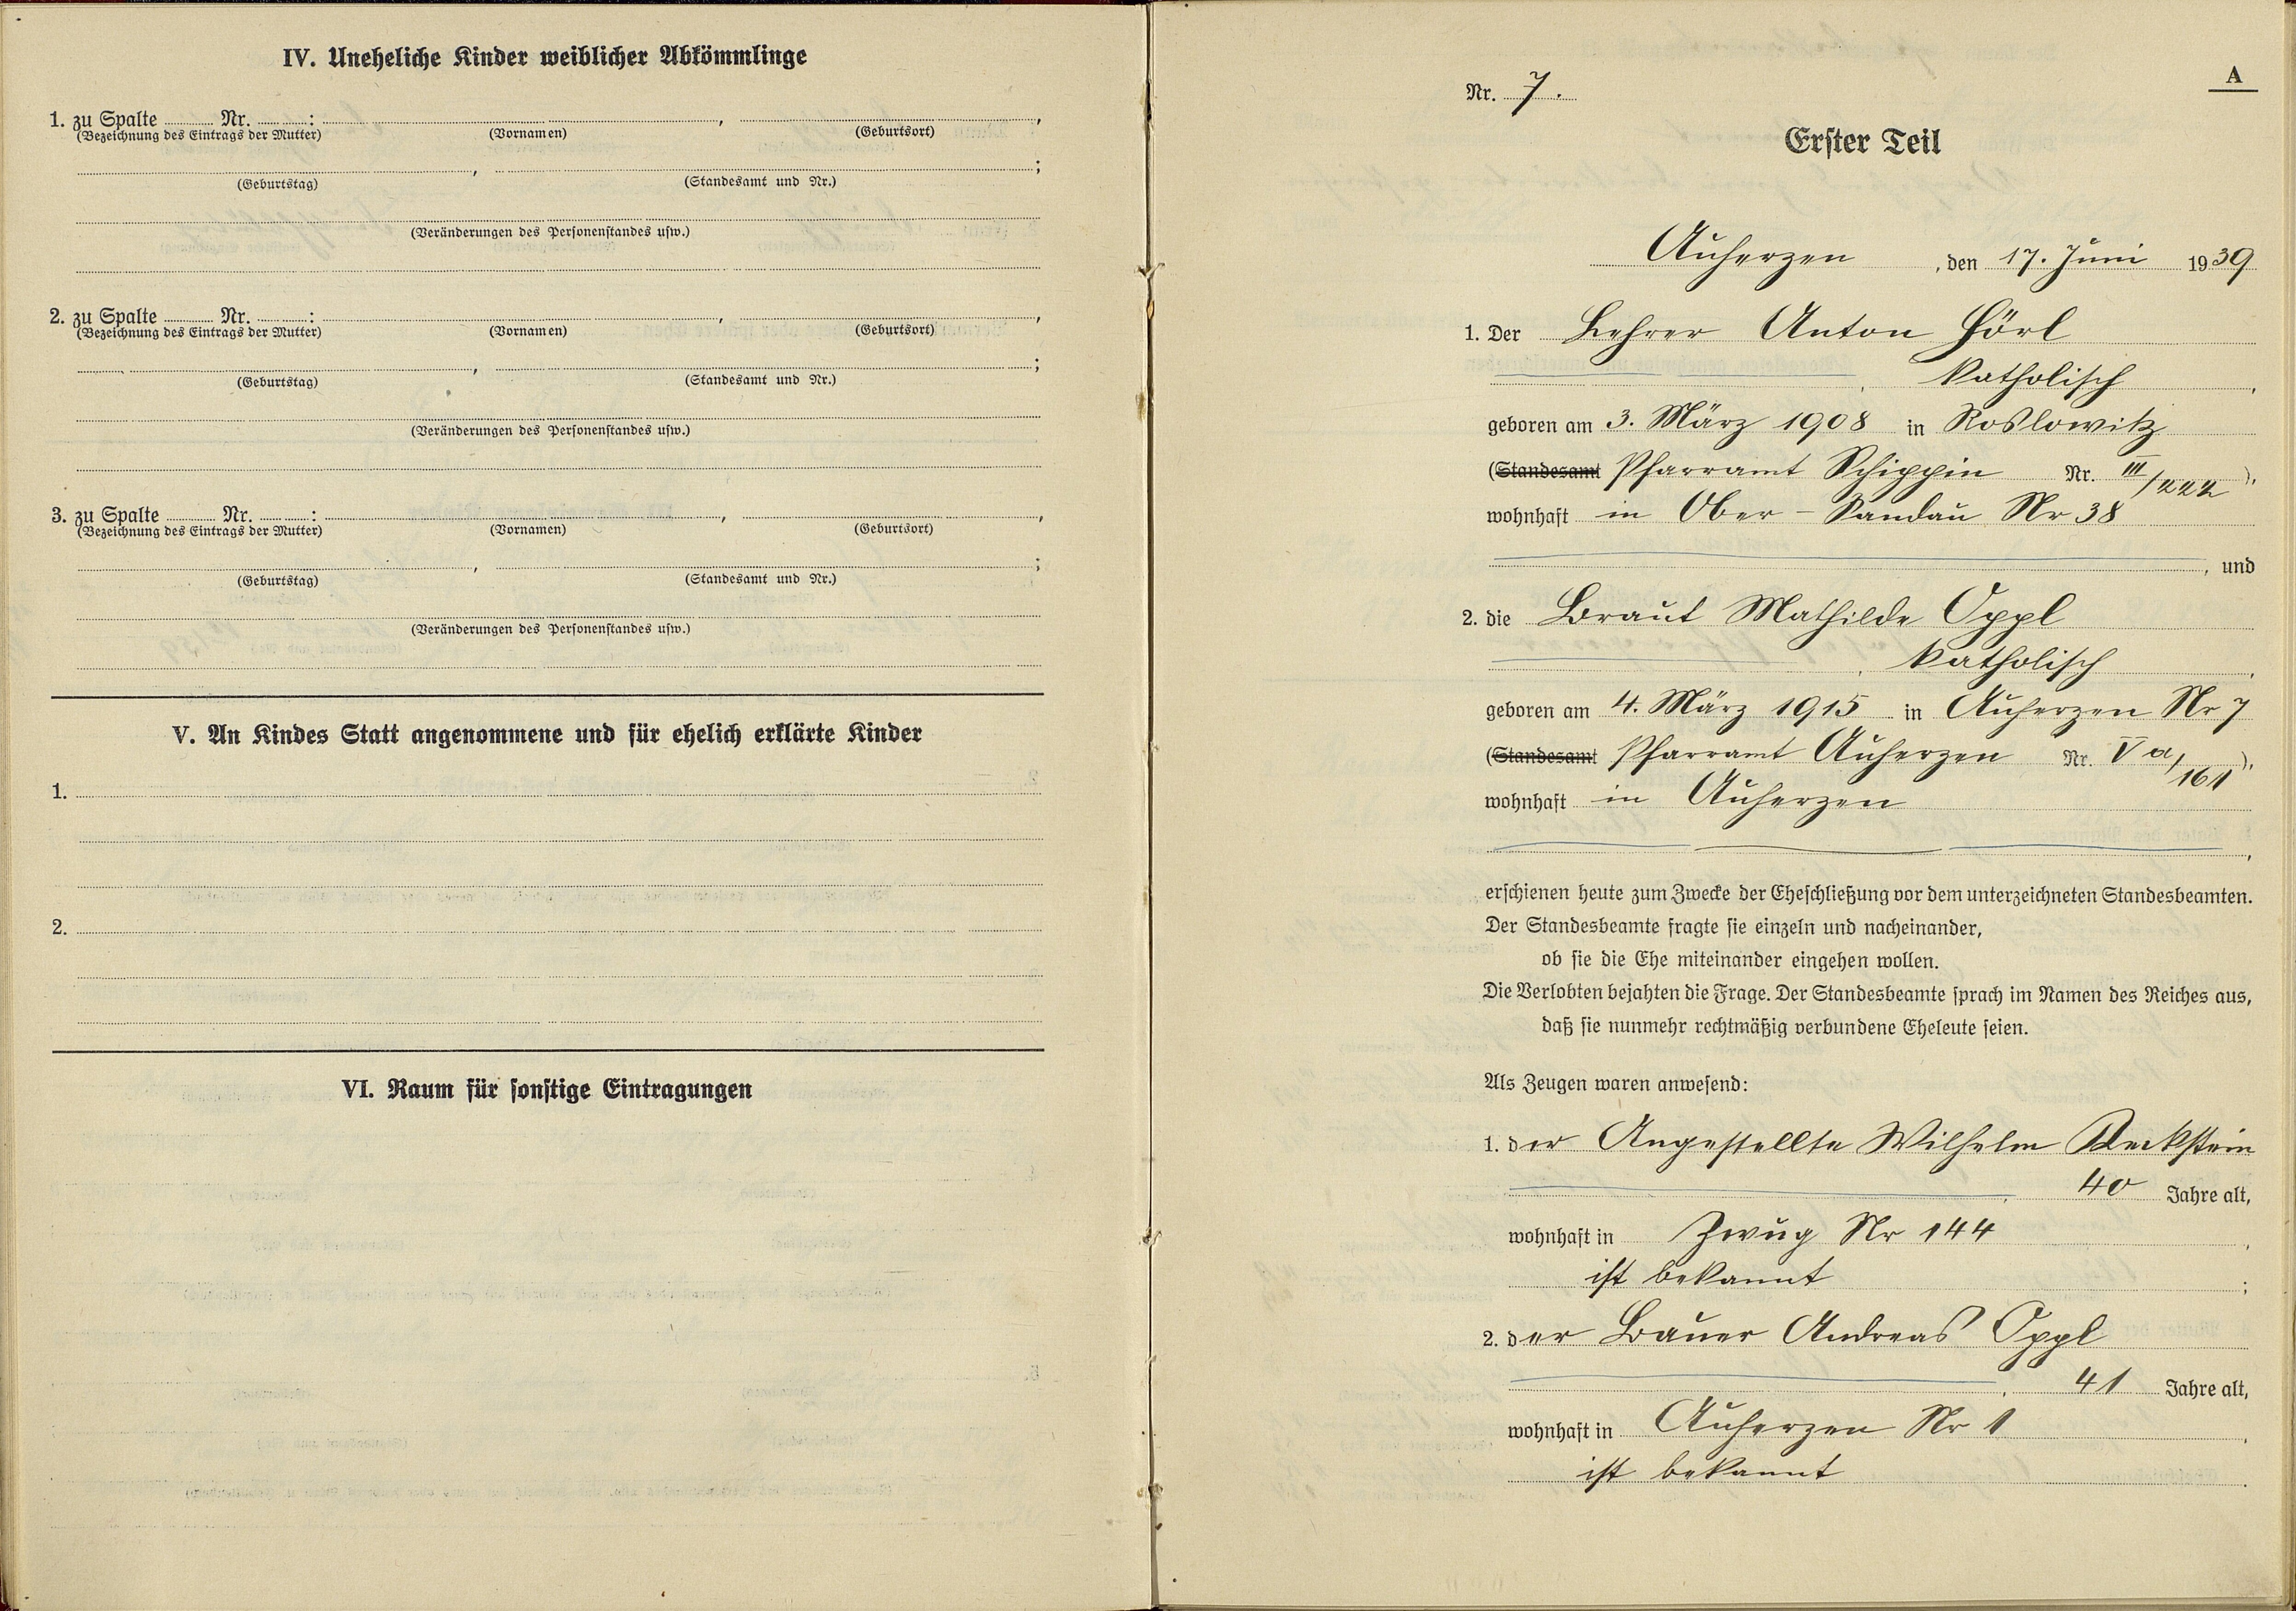 IV. Uneheliche Kinder weiblicher Abkömmlinge
1. zu Spalte Nr. : , ,
(Bezeichnung des Eintrags der Mutter) (Vornamen) (Geburtsort)
, ;
(Geburtstag) (Standesamt und Nr.)
(Veränderungen des Personenstandes usw.)
2. zu Spalte Nr. : , ,
(Bezeichnung des Eintrags der Mutter) (Vornamen) (Geburtsort)
, ;
(Geburtstag) (Standesamt und Nr.)
(Veränderungen des Personenstandes usw.)
3. zu Spalte Nr. : , ,
(Bezeichnung des Eintrags der Mutter) (Vornamen) (Geburtsort)
, ;
(Geburtstag) (Standesamt und Nr.)
(Veränderungen des Personenstandes usw.)
V. An Kindes Statt angenommene und für ehelich erklärte Kinder
1.
2.
VI. Raum für sonstige Eintragungen
A
Nr. 7.
Erster Teil
Auherzen, den 17. Juni 1939
1. Der Lehrer Anton Hörl
, katholisch,
geboren am 3. März 1908 in Roslowitz
(Standesamt Pfarramt Schippin Nr. III/222),
wohnhaft in Ober-Sandau Nr 38
, und
2. die Braut Mathilde Oppl
, katholisch,
geboren am 4. März 1915 in Auherzen Nr 7
(Standesamt Pfarramt Auherzen Nr. Va/161),
wohnhaft in Auherzen
,
erschienen heute zum Zwecke der Eheschließung vor dem unterzeichneten Standesbeamten.
Der Standesbeamte fragte sie einzeln und nacheinander,
ob sie die Ehe miteinander eingehen wollen.
Die Verlobten bejahten die Frage. Der Standesbeamte sprach im Namen des Reiches aus,
daß sie nunmehr rechtmäßig verbundene Eheleute seien.
Als Zeugen waren anwesend:
1. der Angestellte Wilhelm
, 40 Jahre alt,
wohnhaft in Zwug Nr 144,
ist bekannt;
2. der Bauer Andreas Oppl
, 41 Jahre alt,
wohnhaft in Auherzen Nr 1,
ist bekannt.